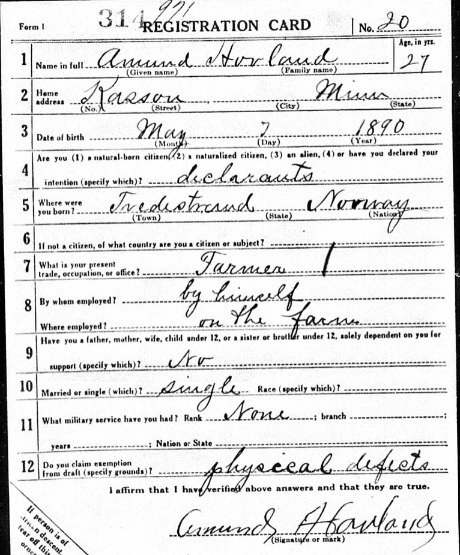 Form 1 314 921 REGISTRATION CARD No. 20
1 Name in full Amund Hovland Age, in yrs. 27
(Given name) (Family name)
2 Home address Kasson Minn
(No.) (Street) (City) (State)
3 Date of birth May 7 1890
(Month) (Day) (Year)
4 Are you (1) a natural-born citizen, (2) a naturalized citizen, (3) an alien, (4) or have you declared your
intention (specify which)? declarants
5 Where were you born? Tvedestrand Norway
(Town) (State) (Nation)
6 If not a citizen, of what country are you a citizen or subject?
7 What is your present trade, occupation, or office? Farmer
8 By whom employed? by himself
Where employed? on the farm
9 Have you a father, mother, wife, child under 12, or a sister or brother under 12, solely dependent on you for
support (specify which)? No
10 Married or single (which)? single Race (specify which)?
11 What military service have you had? Rank None ; branch
years ; Nation or State
12 Do you claim exemption from draft (specify grounds)? physical defects
I affirm that I have verified above answers and that they are true.
Amund Hovland
(Signature or mark)
If person is of